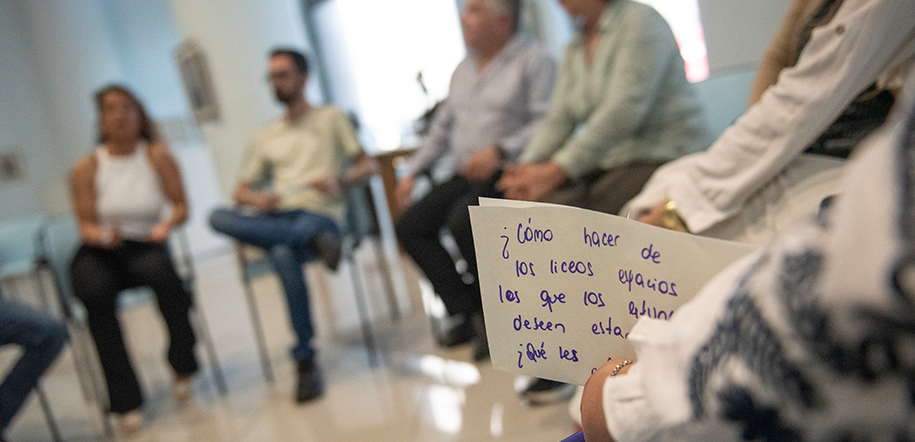 ¿Cómo hacer de
los liceos espacios
los que los estud
deseen estar
¿Qué les